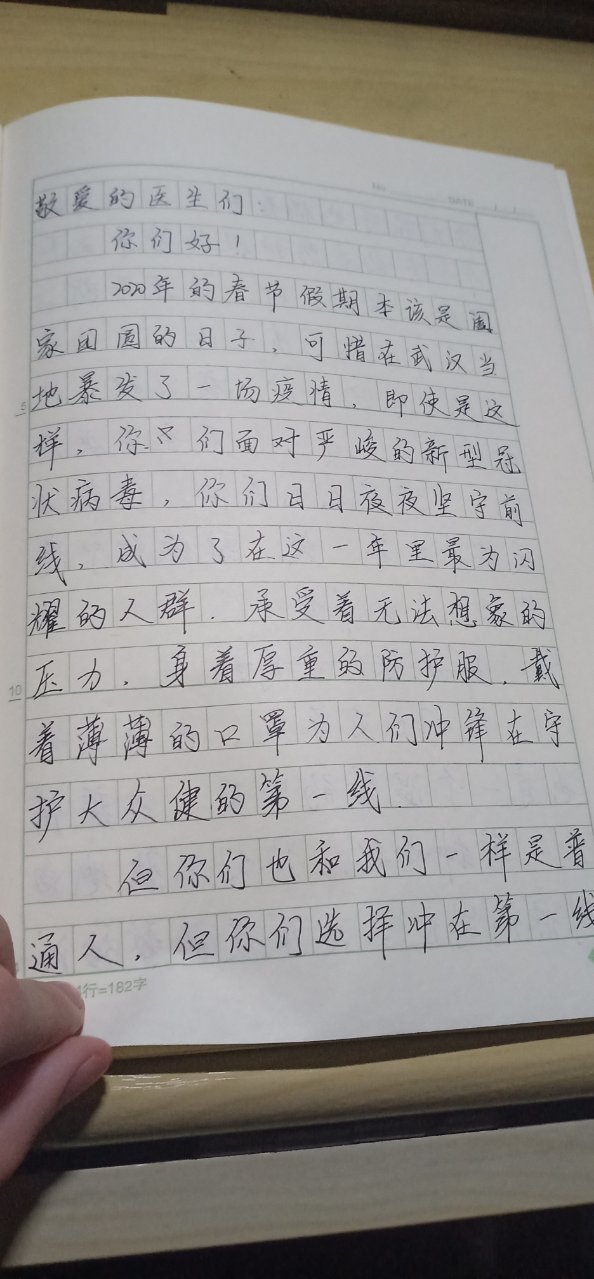 No DATE / /
敬爱的医生们：
你们好！
2020年的春节假期本该是阖
家团圆的日子，可惜在武汉当
5 地暴发了一场疫情，即使是这
样，你们面对严峻的新型冠
状病毒，你们日日夜夜坚守前
线，成为了在这一年里最为闪
耀的人群．承受着无法想象的
10 压力，身着厚重的防护服，戴
着薄薄的口罩为人们冲锋在守
护大众健的第一线．
但你们也和我们一样是普
通人，但你们选择冲在第一线
行=182字